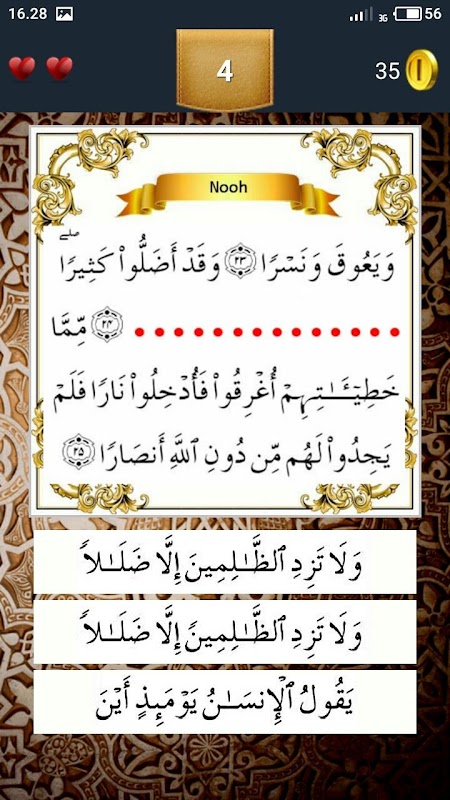 16.28 3G 56
4
35
Nooh
وَيَعُوقَ وَنَسْرًا ٢٣ وَقَدْ أَضَلُّوا۟ كَثِيرًا ۖ
.............. ٢٤ مِّمَّا
خَطِيٓـَٔـٰتِهِمْ أُغْرِقُوا۟ فَأُدْخِلُوا۟ نَارًا فَلَمْ
يَجِدُوا۟ لَهُم مِّن دُونِ ٱللَّهِ أَنصَارًا ٢٥
وَلَا تَزِدِ ٱلظَّـٰلِمِينَ إِلَّا ضَلَـٰلًا
وَلَا تَزِدِ ٱلظَّـٰلِمِينَ إِلَّا ضَلَـٰلًا
يَقُولُ ٱلْإِنسَـٰنُ يَوْمَئِذٍ أَيْنَ